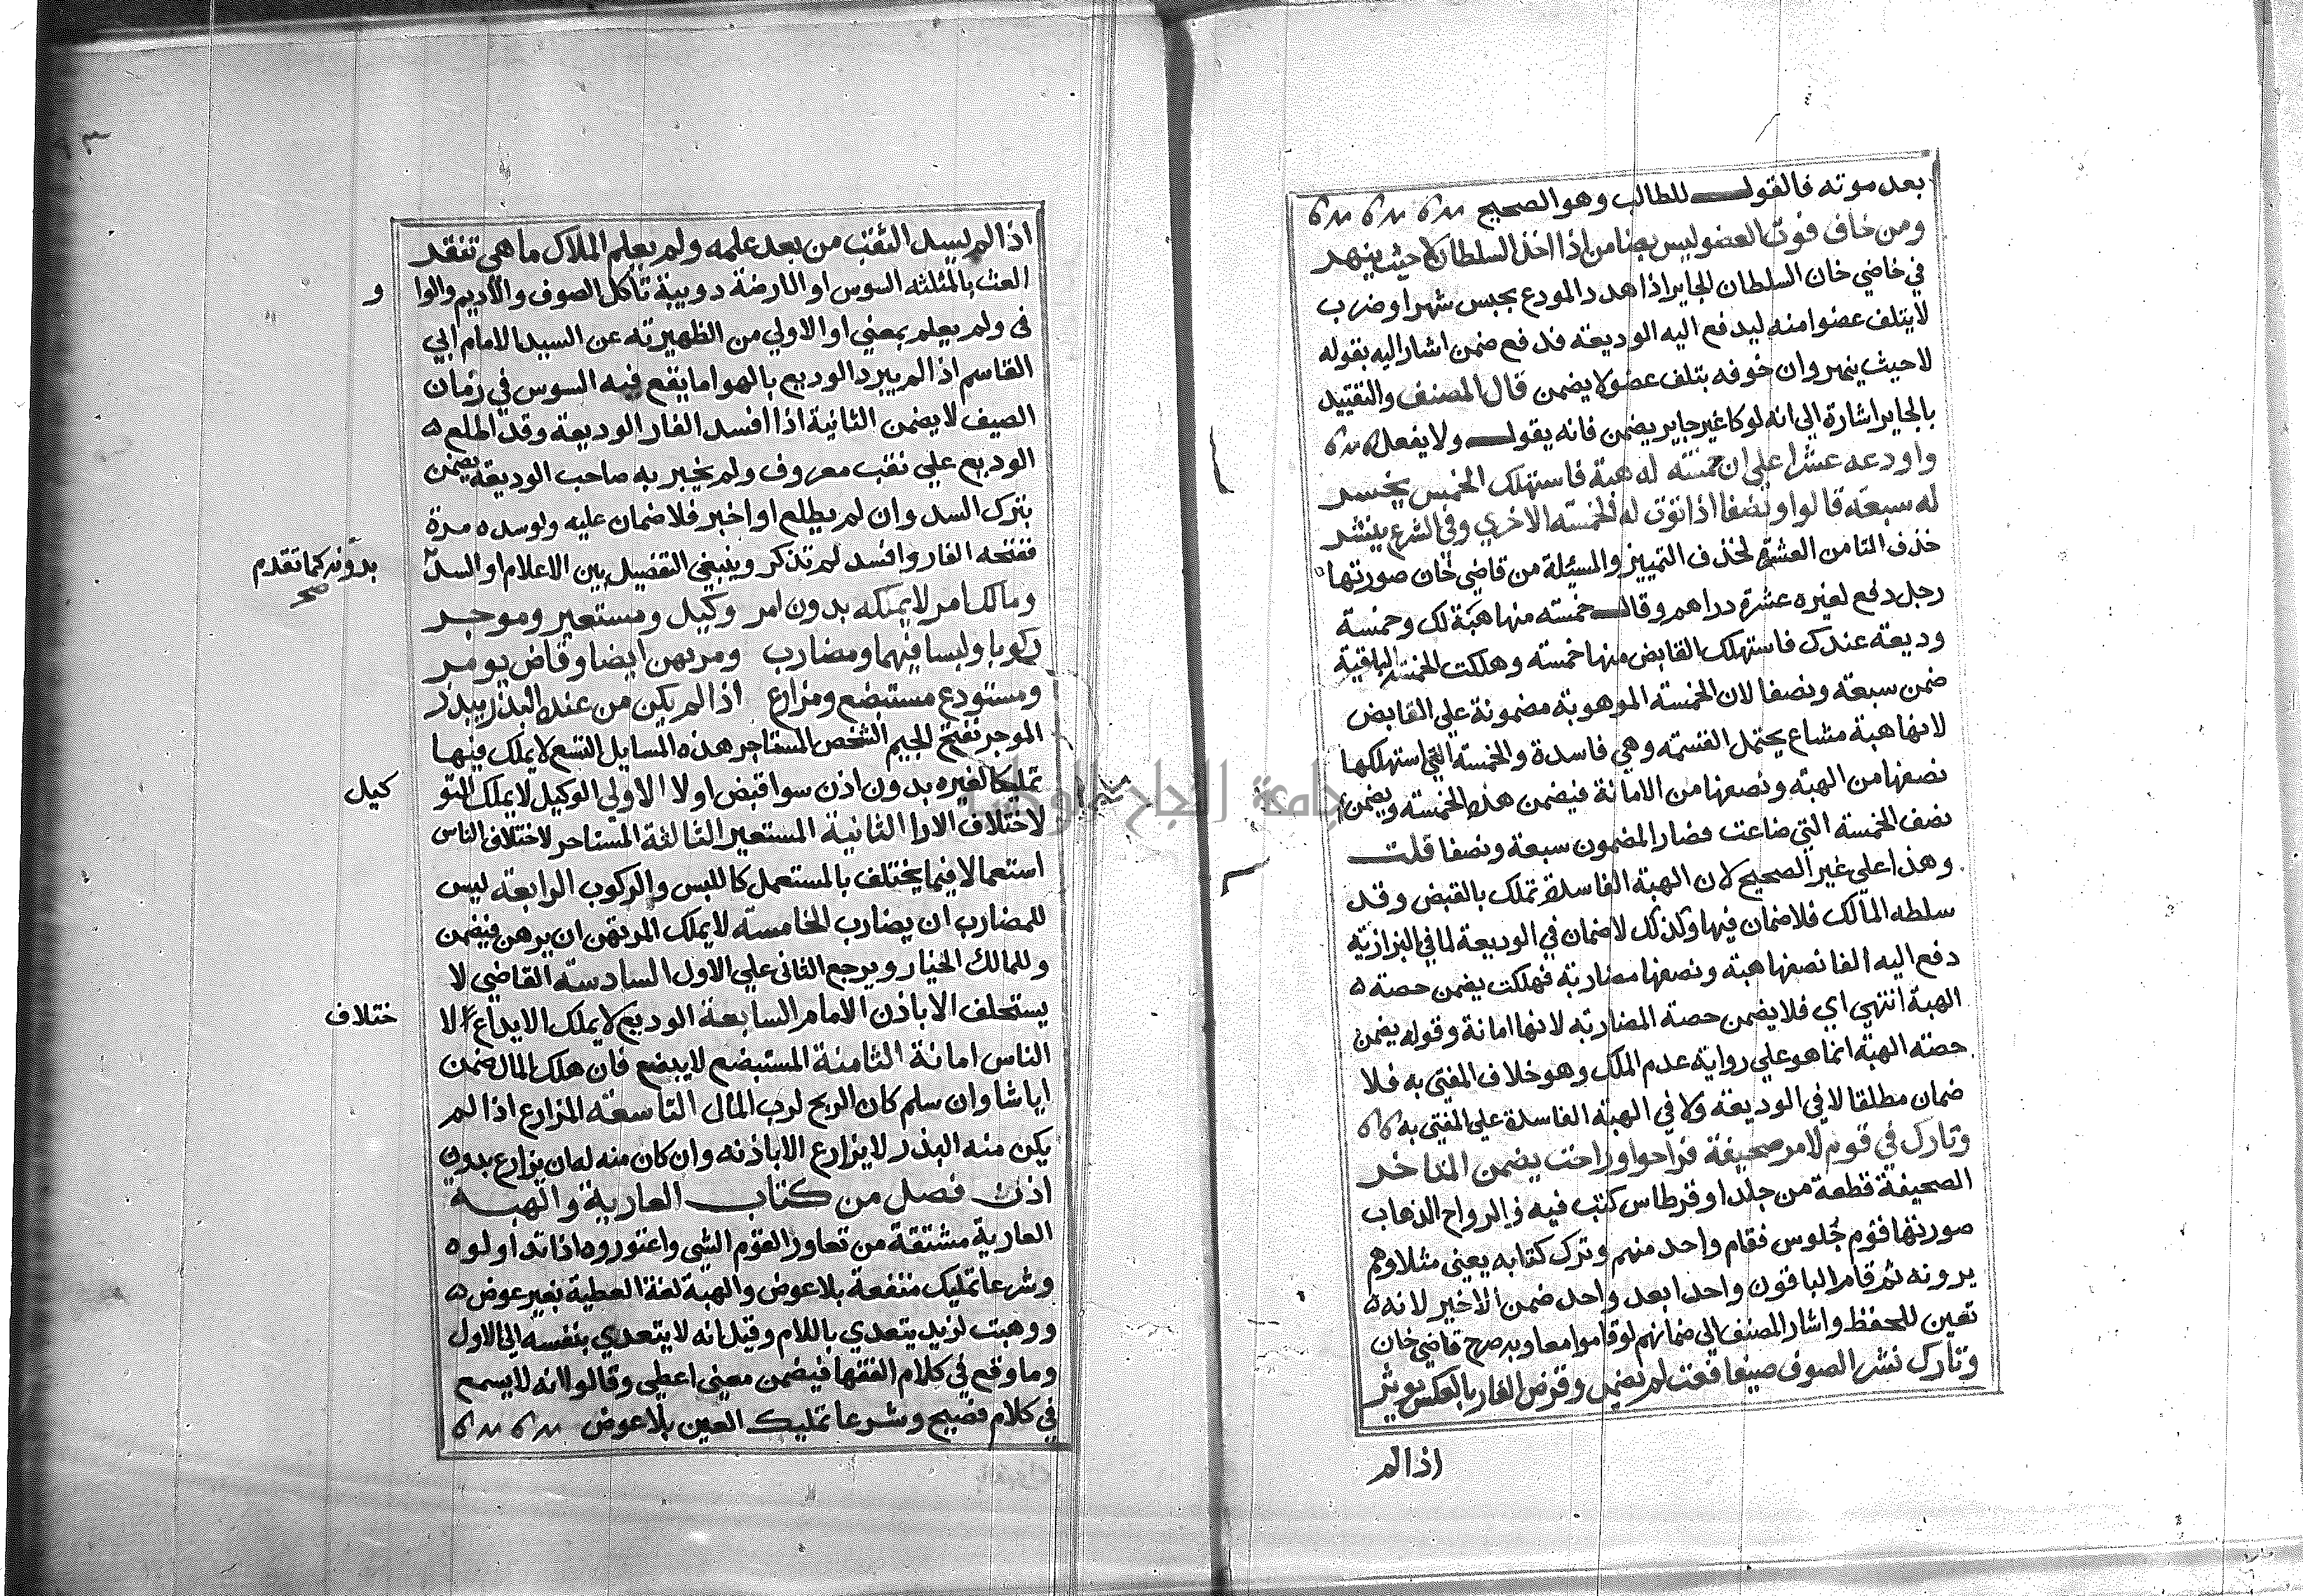 بعد موته فالقول للطالب وهو الصحيح
ومن خاف فوت العضو ليس بضامن اذا اخذ السلطان لا حيث ينهر
في خاضي خان السلطان الجاير اذا هدد المودع بحبس شهر او ضرب
لا يتلف عضوا منه ليدفع اليه الوديعة فدفع ضمن اشار اليه بقوله
لا حيث ينهر وان خوفه بتلف عضو لا يضمن قال المصنف والتقييد
بالجاير اشارة الي انه لو كا غير جاير يضمن فانه يقول ولا يفعل
واودعه عشرا علي ان خمسته له هبة فاستهلك الخمس يخسر
له سبعة قالوا ونصفا اذا توت له الخمسته الاخري وفي الشرع ينشد
حذف التا من العشرة لحذف التمييز والمسئلة من قاضي خان صورتها
رجل دفع لغيره عشرة دراهم وقال خمسته منها هبة لك وخمسة
وديعة عندك فاستهلك القابض منها خمسته وهلكت الخمسة الباقية
ضمن سبعة ونصفا لان الخمسته الموهوبة مضمونة علي القابض
لانها هبة مشاع يحتمل القسمته وهي فاسدة والخمسته التي استهلكها
نصفها من الهبة ونصفها من الامانة فيضمن هذه الخمسته ويضمن
نصف الخمسة التي ضاعت فصار المضمون سبعة ونصفا قلت
وهذا علي غير الصحيح لان الهبة الفاسدة تملك بالقبض وقد
سلطه المالك فلا ضمان فيها وكذلك لا ضمان في الوديعة لما في البزازية
دفع اليه الفا نصفها هبة ونصفها مضاربة فهلكت يضمن حصة
الهبة انتهي اي فلا يضمن حصة المضاربة لانها امانة وقوله يضمن
حصته الهبة انما هو علي رواية عدم الملك وهو خلاف المفتي به فلا
ضمان مطلقا لا في الوديعة ولا في الهبة الفاسدة علي المفتي به
وتارك في قوم لامر صحيفة فراحوا وراحت يضمن المتاخر
الصحيفة قطعة من جلد او قرطاس كتب فيه والرواح الذهاب
صورتها قوم جلوس فقام واحد منهم وترك كتابه يعني مثلا وهم
يرونه ثم قام الباقون واحدا بعد واحد ضمن الاخير لانه
تعين للحفظ واشار المصنف الي ضمانهم لو قاموا معا وبه صرح قاضي خان
وتارك نشر الصوف صيفا فعث لم يضمن وقرض الفار بالعكس يوثر
اذا لم
اذا لم يسد الثقب من بعد علمه ولم يعلم الملاك ما هي تفقد
العث بالمثلثه السوس او الارضة دويبة تاكل الصوف والاديم والوا
و
في ولم يعلم بمعني او الاولي من الظهيرته عن السيد الامام ابي
القاسم اذا لم يبرد الوديع بالهوا ما يقع فيه السوس في زمان
الصيف لا يضمن الثانية اذا افسد الفار الوديعة وقد اطلع
الوديع علي نقب معروف ولم يخبر به صاحب الوديعة يضمن
بترك السد وان لم يطلع او اخبر فلا ضمان عليه ولو سده مرة
ففتحه الفار وافسد لم تذكر وينبغي التفصيل بين الاعلام او السد
بدونه كما تقدم
صح
ومالك امر لا يملكه بدون امر وكيل ومستعير وموجر
ركوبا ولبسا فيهما ومضارب ومرتهن ايضا وقاض يومر
ومستودع مستبضع ومزارع اذا لم يكن من عنده البذر يبذر
الموجر بفتح الجيم الشخص المستاجر هذه المسايل التسع لا يملك فيها
تمليكا لغيره بدون اذن سوا قبض اولا الاولي الوكيل لا يملك التو
كيل
لاختلاف الارا الثانية المستعير الثالثة المستاجر لاختلاف الناس
استعمالا فيما يختلف بالمستعمل كاللبس والركوب الرابعة ليس
للمضارب ان يضارب الخامسته لا يملك المرتهن ان يرهن فيضمن
وللمالك الخيار ويرجع الثاني علي الاول السادسة القاضي لا
يستخلف الا باذن الامام السابعة الوديع لا يملك الايداع لا
ختلاف
الناس امانة الثامنة المستبضع لا يبضع فان هلك المال ضمن
ايا شا وان سلم كان الربح لرب المال التاسعة المزارع اذا لم
يكن منه البذر لا يزارع الا باذنه وان كان منه له ان يزارع بدون
اذن فصل من كتاب العارية والهبة
العارية مشتقة من تعاور القوم الشي واعتوروه اذا تداولوه
وشرعا تمليك منفعة بلا عوض والهبة لغة العطية بغير عوض
ووهبت لزيد يتعدي باللام وقيل انه لا يتعدي بنفسه الي الاول
وما وقع في كلام الفقها فيضمن معني اعطي وقالوا انه لا يسمع
في كلام فصيح وشرعا تمليك العين بلا عوض
جامعة النجاح الوطنية